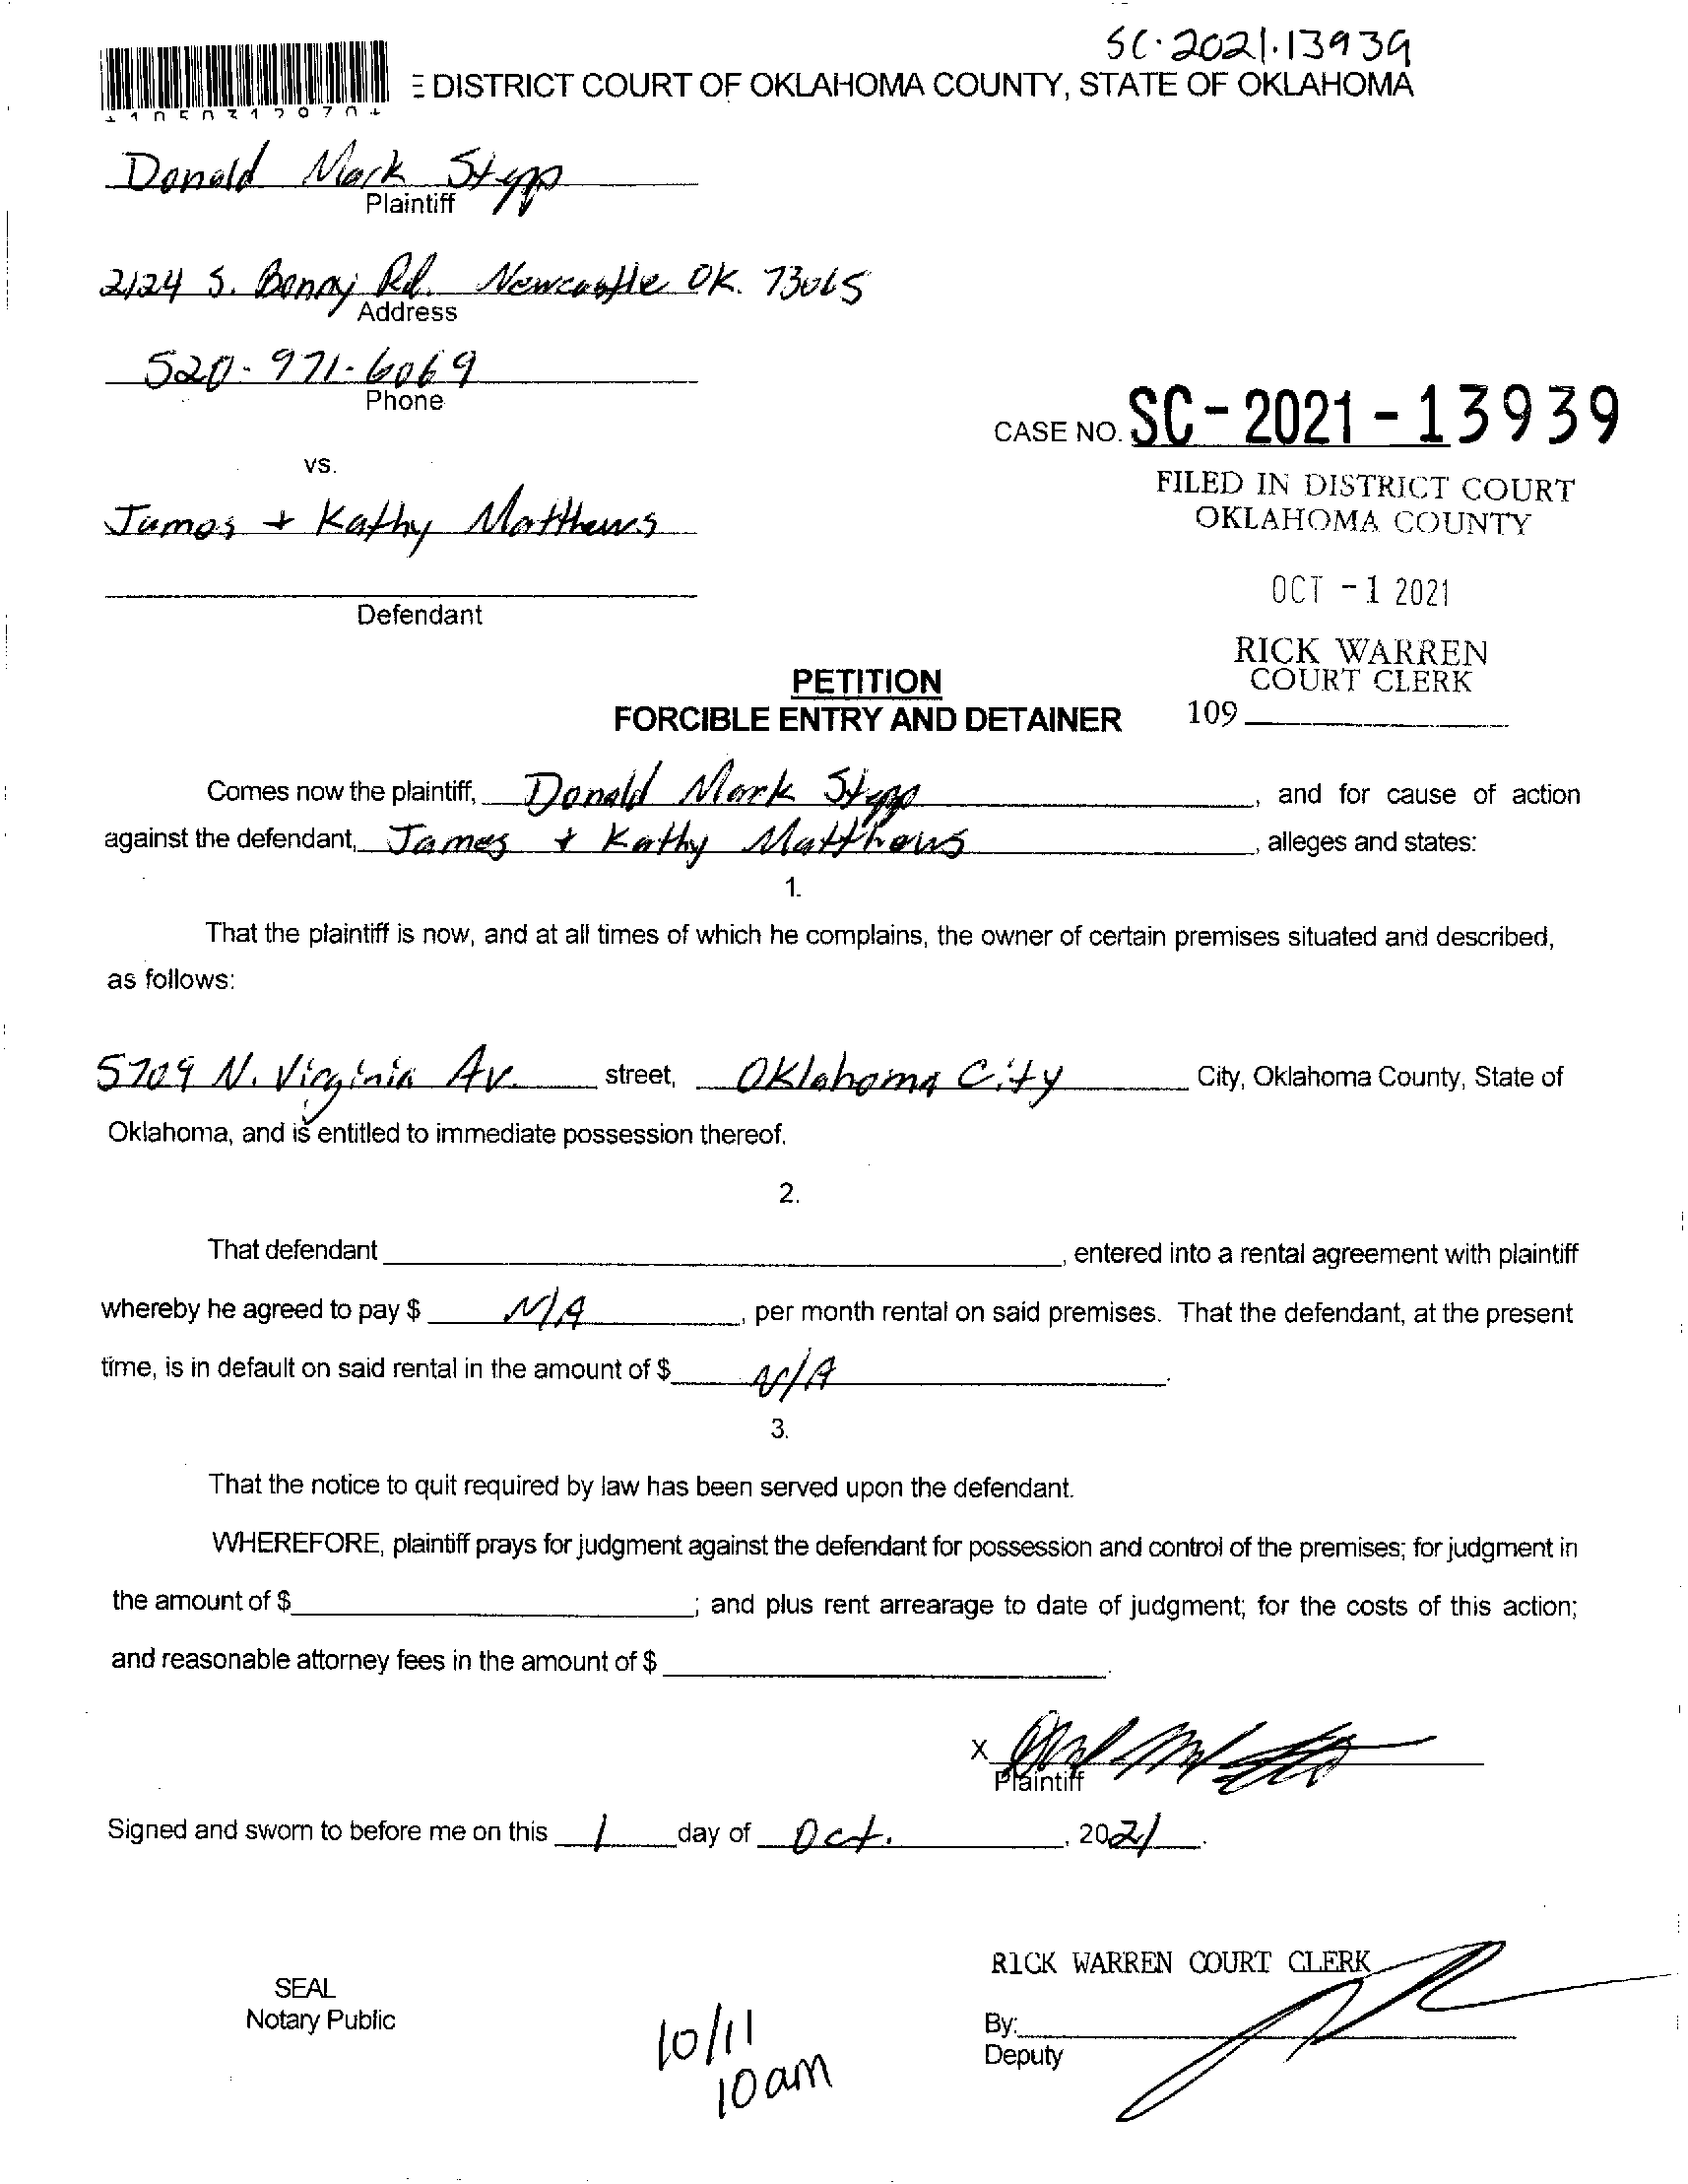 SC-2021-13939
DISTRICT COURT OF OKLAHOMA COUNTY, STATE OF OKLAHOMA
Donald Mark Stepp
Plaintiff
2124 S. Bonny Rd. Newcastle OK. 73065
Address
520-971-6069
Phone
CASE NO. SC-2021-13939
vs.
FILED IN DISTRICT COURT
OKLAHOMA COUNTY
James + Kathy Matthews
OCT -1 2021
Defendant
RICK WARREN
COURT CLERK
109
PETITION
FORCIBLE ENTRY AND DETAINER
Comes now the plaintiff, Donald Mark Stepp, and for cause of action
against the defendant, James + Kathy Matthews, alleges and states:
1.
That the plaintiff is now, and at all times of which he complains, the owner of certain premises situated and described,
as follows:
5709 N. Virginia Av. street, Oklahoma City City, Oklahoma County, State of
Oklahoma, and is entitled to immediate possession thereof.
2.
That defendant , entered into a rental agreement with plaintiff
whereby he agreed to pay $ N/A, per month rental on said premises. That the defendant, at the present
time, is in default on said rental in the amount of $ N/A.
3.
That the notice to quit required by law has been served upon the defendant.
WHEREFORE, plaintiff prays for judgment against the defendant for possession and control of the premises; for judgment in
the amount of $ ; and plus rent arrearage to date of judgment; for the costs of this action;
and reasonable attorney fees in the amount of $ .
X
Plaintiff
Signed and sworn to before me on this 1 day of Oct., 2021.
RICK WARREN COURT CLERK
SEAL
Notary Public
By:
Deputy
10/11
10am